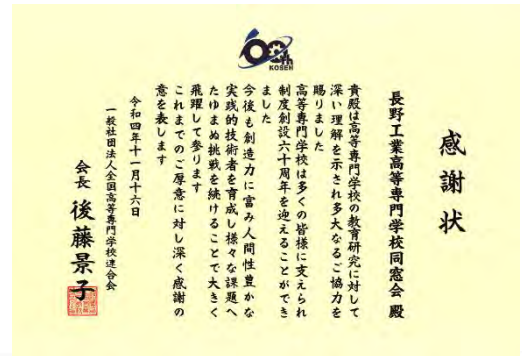 60th
KOSEN
感謝状
長野工業高等専門学校同窓会 殿
貴殿は高等専門学校の教育研究に対して
深い理解を示され多大なるご協力を
賜りました
高等専門学校は多くの皆様に支えられ
制度創設六十周年を迎えることができ
ました
今後も創造力に富み人間性豊かな
実践的技術者を育成し様々な課題へ
たゆまぬ挑戦を続けることで大きく
飛躍して参ります
これまでのご厚意に対し深く感謝の
意を表します
令和四年十一月十六日
一般社団法人全国高等専門学校連合会
会長 後藤景子